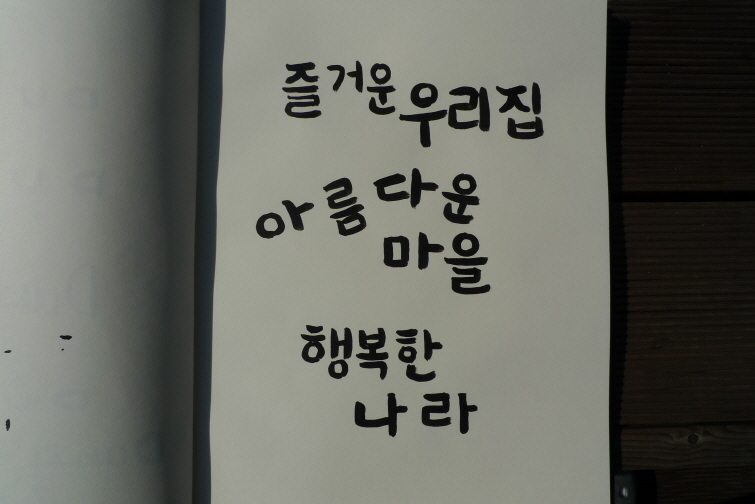 즐거운 우리집
아름다운
마을
행복한
나라